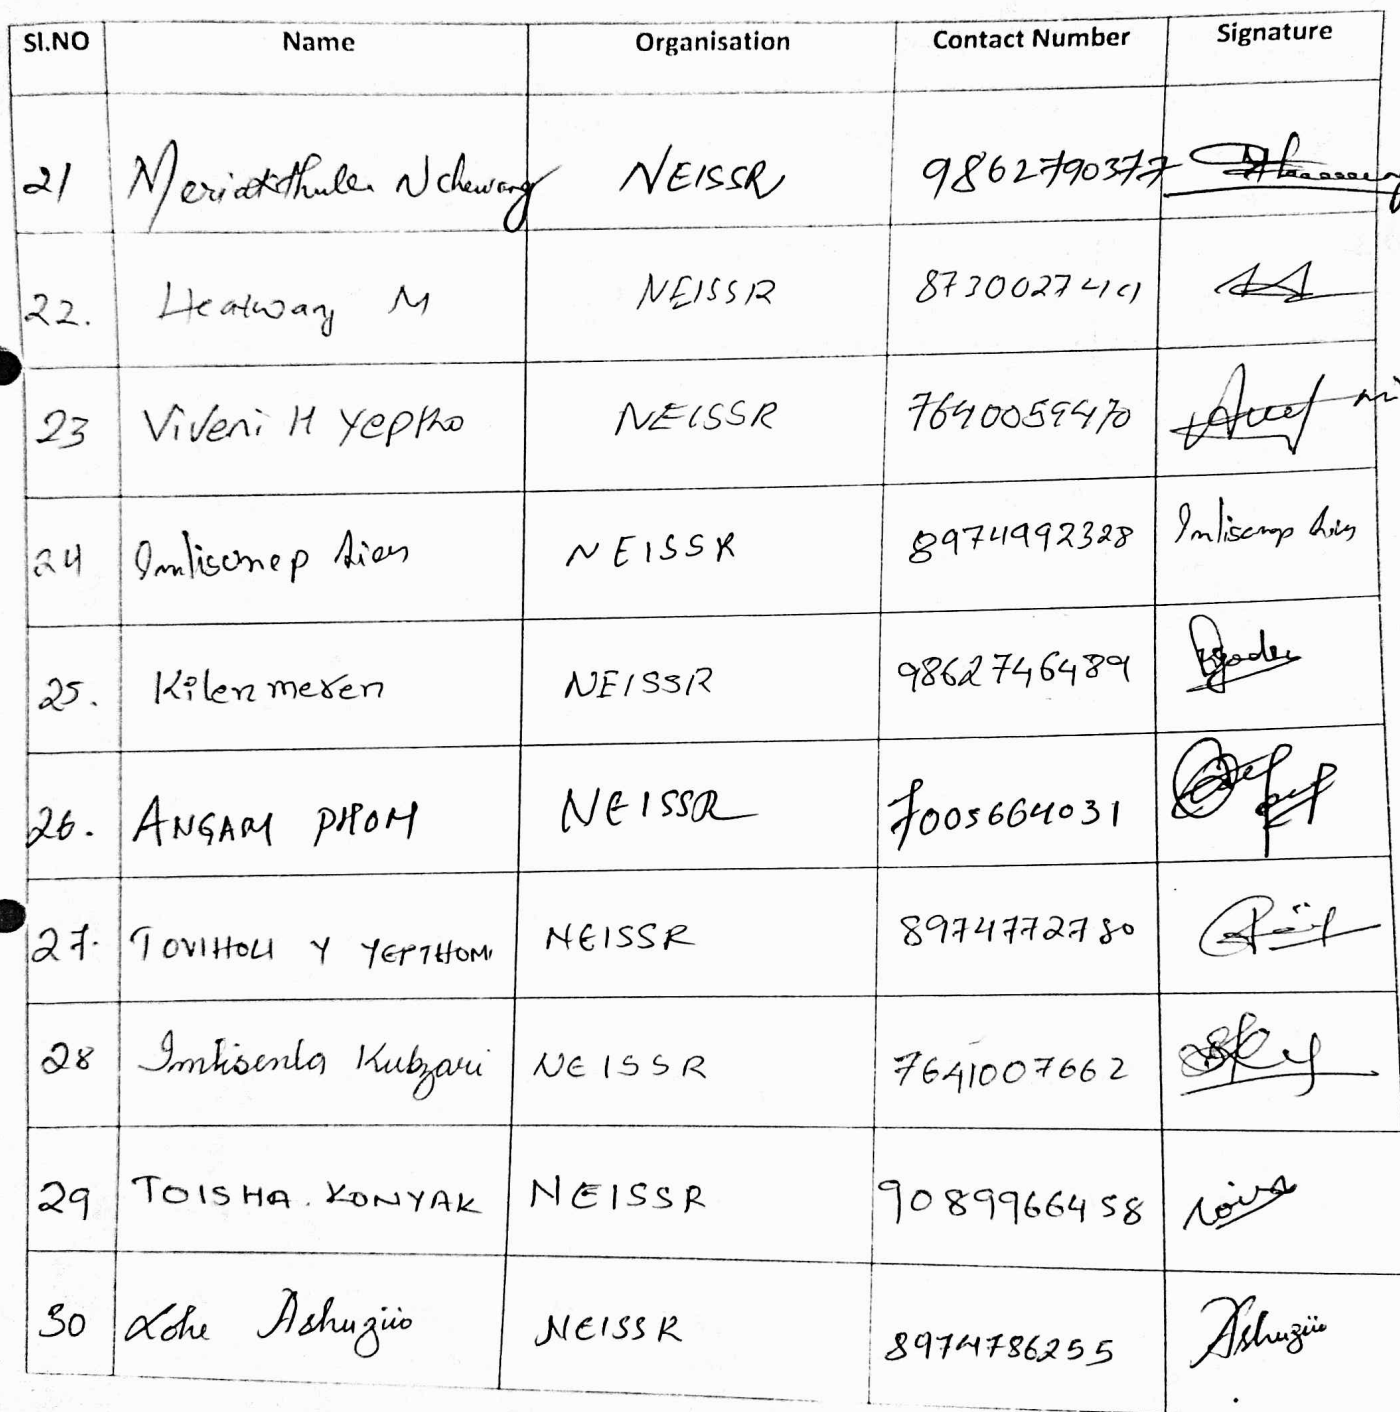 Sl.NO Name Organisation Contact Number Signature
21 NEISSR 9862790377
22. M NEISSR
23 Viveni H Yeptho NEISSR 7640059470
24 NEISSR 8974992328
25. Kilenmeren NEISSR 9862746489
26. ANGAM PHOM NEISSR 7005664031
27. TOVIHOLI Y YEPTHOMI NEISSR 8974772780
28 Imtisenla Kubzari NEISSR 7641007662
29 TOISHA. KONYAK NEISSR 9089966458
30 Lohe Ashuziio NEISSR 8974786255 Ashuziio